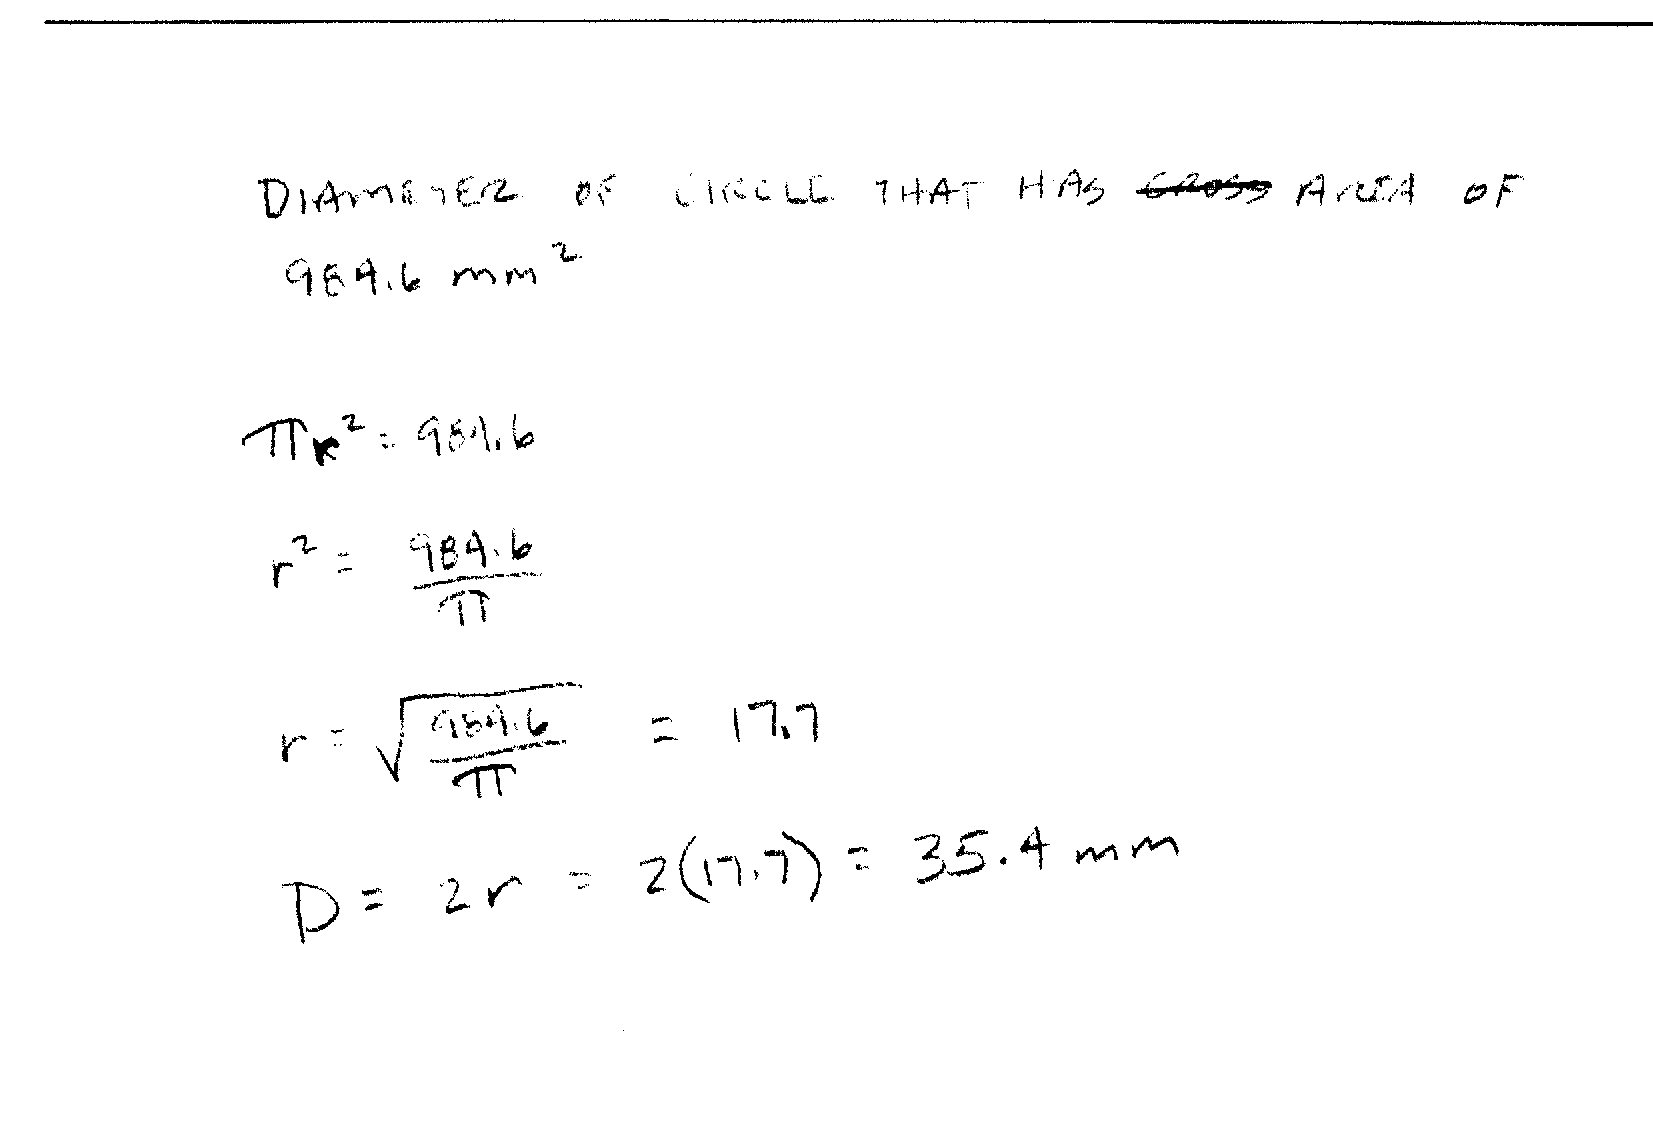 DIAMETER OF CIRCLE THAT HAS ~~CROSS~~ AREA OF
984.6 mm²
πr² = 984.6
r² = 984.6/π
r = √(984.6/π) = 17.7
D = 2r = 2(17.7) = 35.4 mm